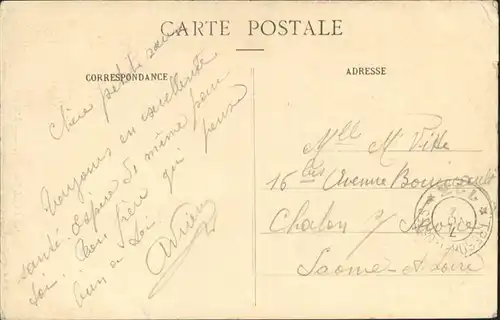 CARTE POSTALE
CORRESPONDANCE
ADRESSE
Chère petite sœur
Toujours en excellente
santé. espère de même pour
toi. Ton frère qui pense
bien à toi.
Mlle M Vitte
16 bis Avenue
Chalon s/ Saone
Saone-et-Loire